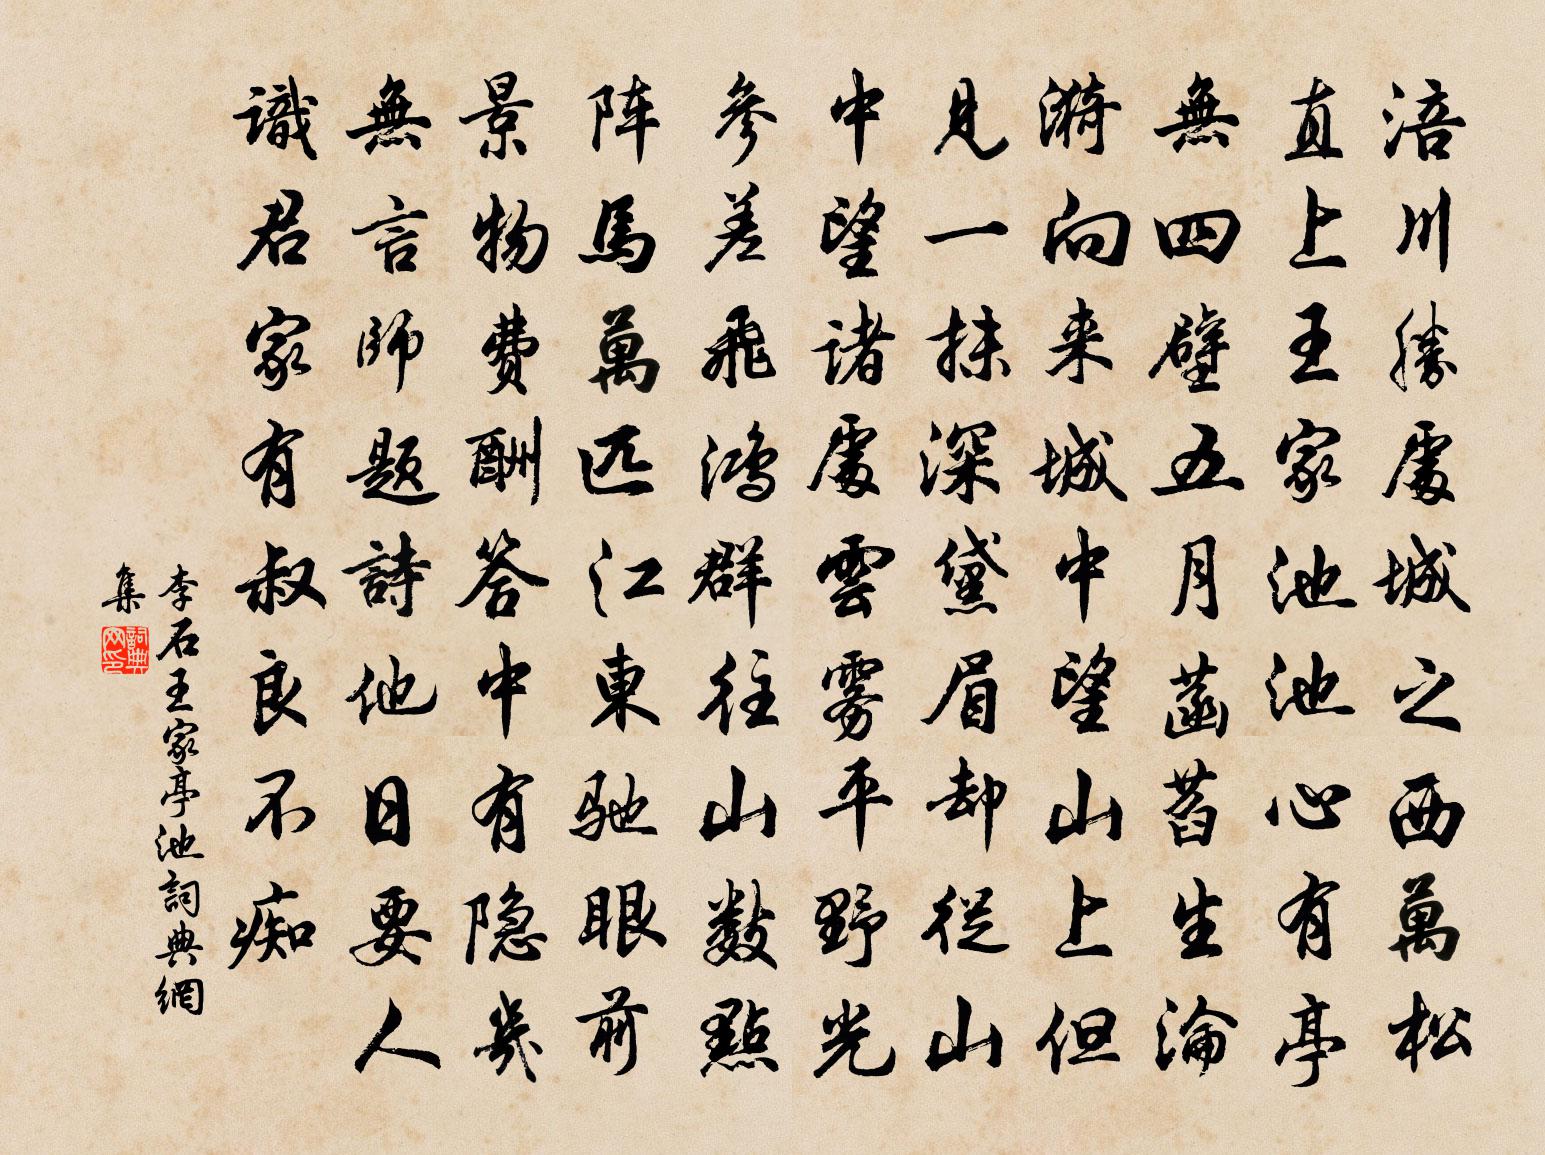 涪川勝處城之西萬松
直上王家池池心有亭
無四壁五月菡萏生淪
漪向来城中望山上但
見一抹深黛眉却從山
中望诸處雲雾平野光
參差飛鴻群往山數點
阵馬萬匹江東驰眼前
景物費酬答中有隐幾
無言師题詩他日要人
識君家有叔良不痴
李石王家亭池詞典網
集
詞典网印